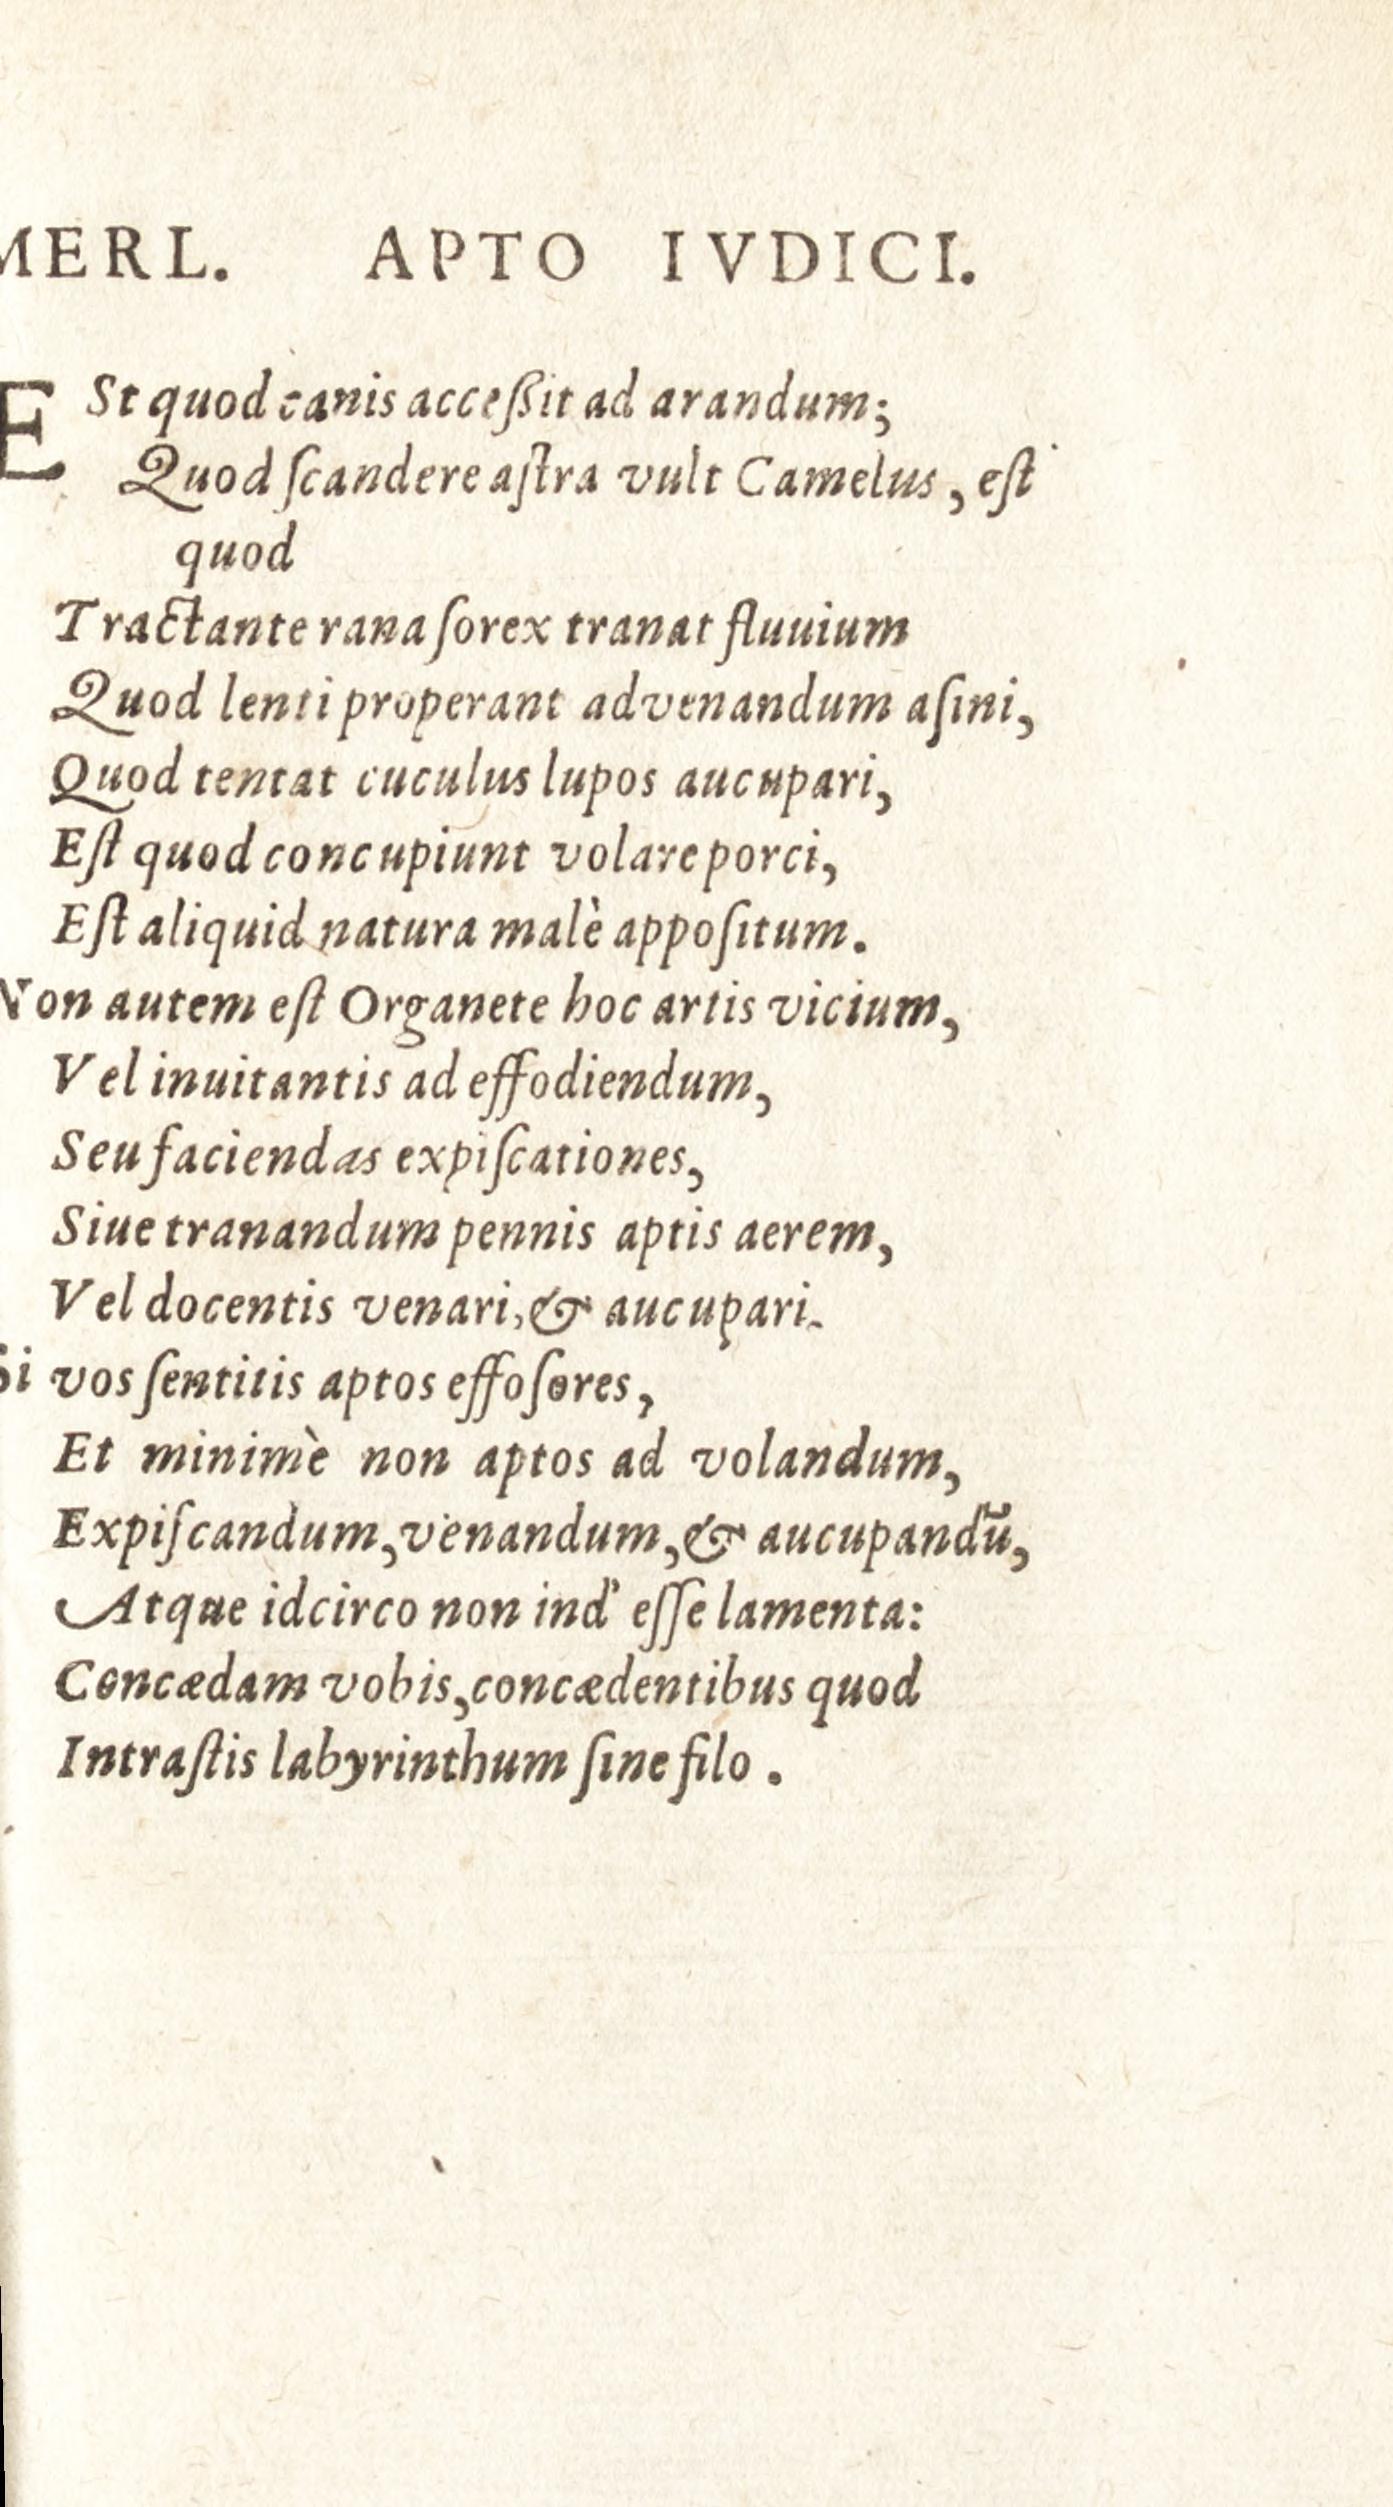 MERL. APTO IVDICI.
ESt quod canis acceßit ad arandum;
Quod ſcandere aſtra vult Camelus, eſt
quod
Tractante rana ſorex tranat fluuium
Quod lenti properant ad venandum aſini,
Quod tentat cuculus lupos aucupari,
Eſt quod concupiunt volare porci,
Eſt aliquid natura malè appoſitum.
Non autem eſt Organete hoc artis vicium,
Vel inuitantis ad effodiendum,
Seu faciendas expiſcationes,
Siue tranandum pennis aptis aerem,
Vel docentis venari, & aucupari.
Si vos ſentitis aptos effoſores,
Et minimè non aptos ad volandum,
Expiſcandum, venandum, & aucupandū,
Atque idcirco non ind' eſſe lamenta:
Concædam vobis, concædentibus quod
Intraſtis labyrinthum ſine filo.